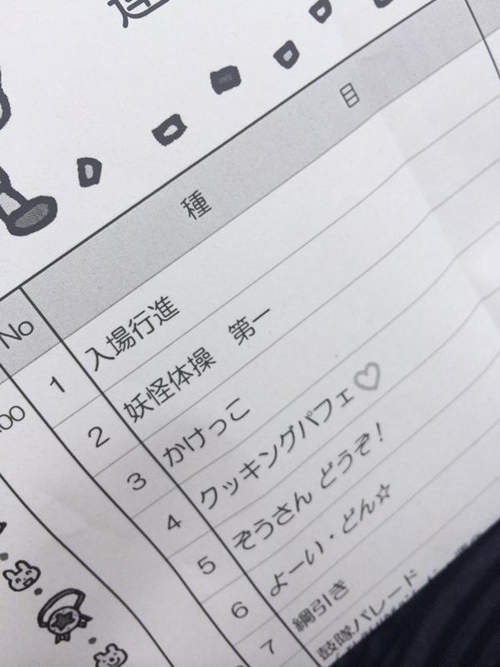 No 種目
1 入場行進
2 妖怪体操 第一
3 かけっこ
4 クッキングパフェ♡
5 ぞうさん どうぞ!
6 よーい・どん☆
7 綱引き
鼓隊パレード